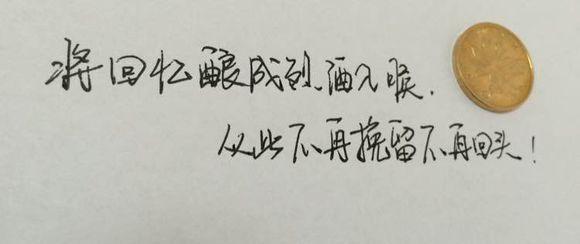 将回忆酿成烈酒入喉.
从此不再挽留不再回头!